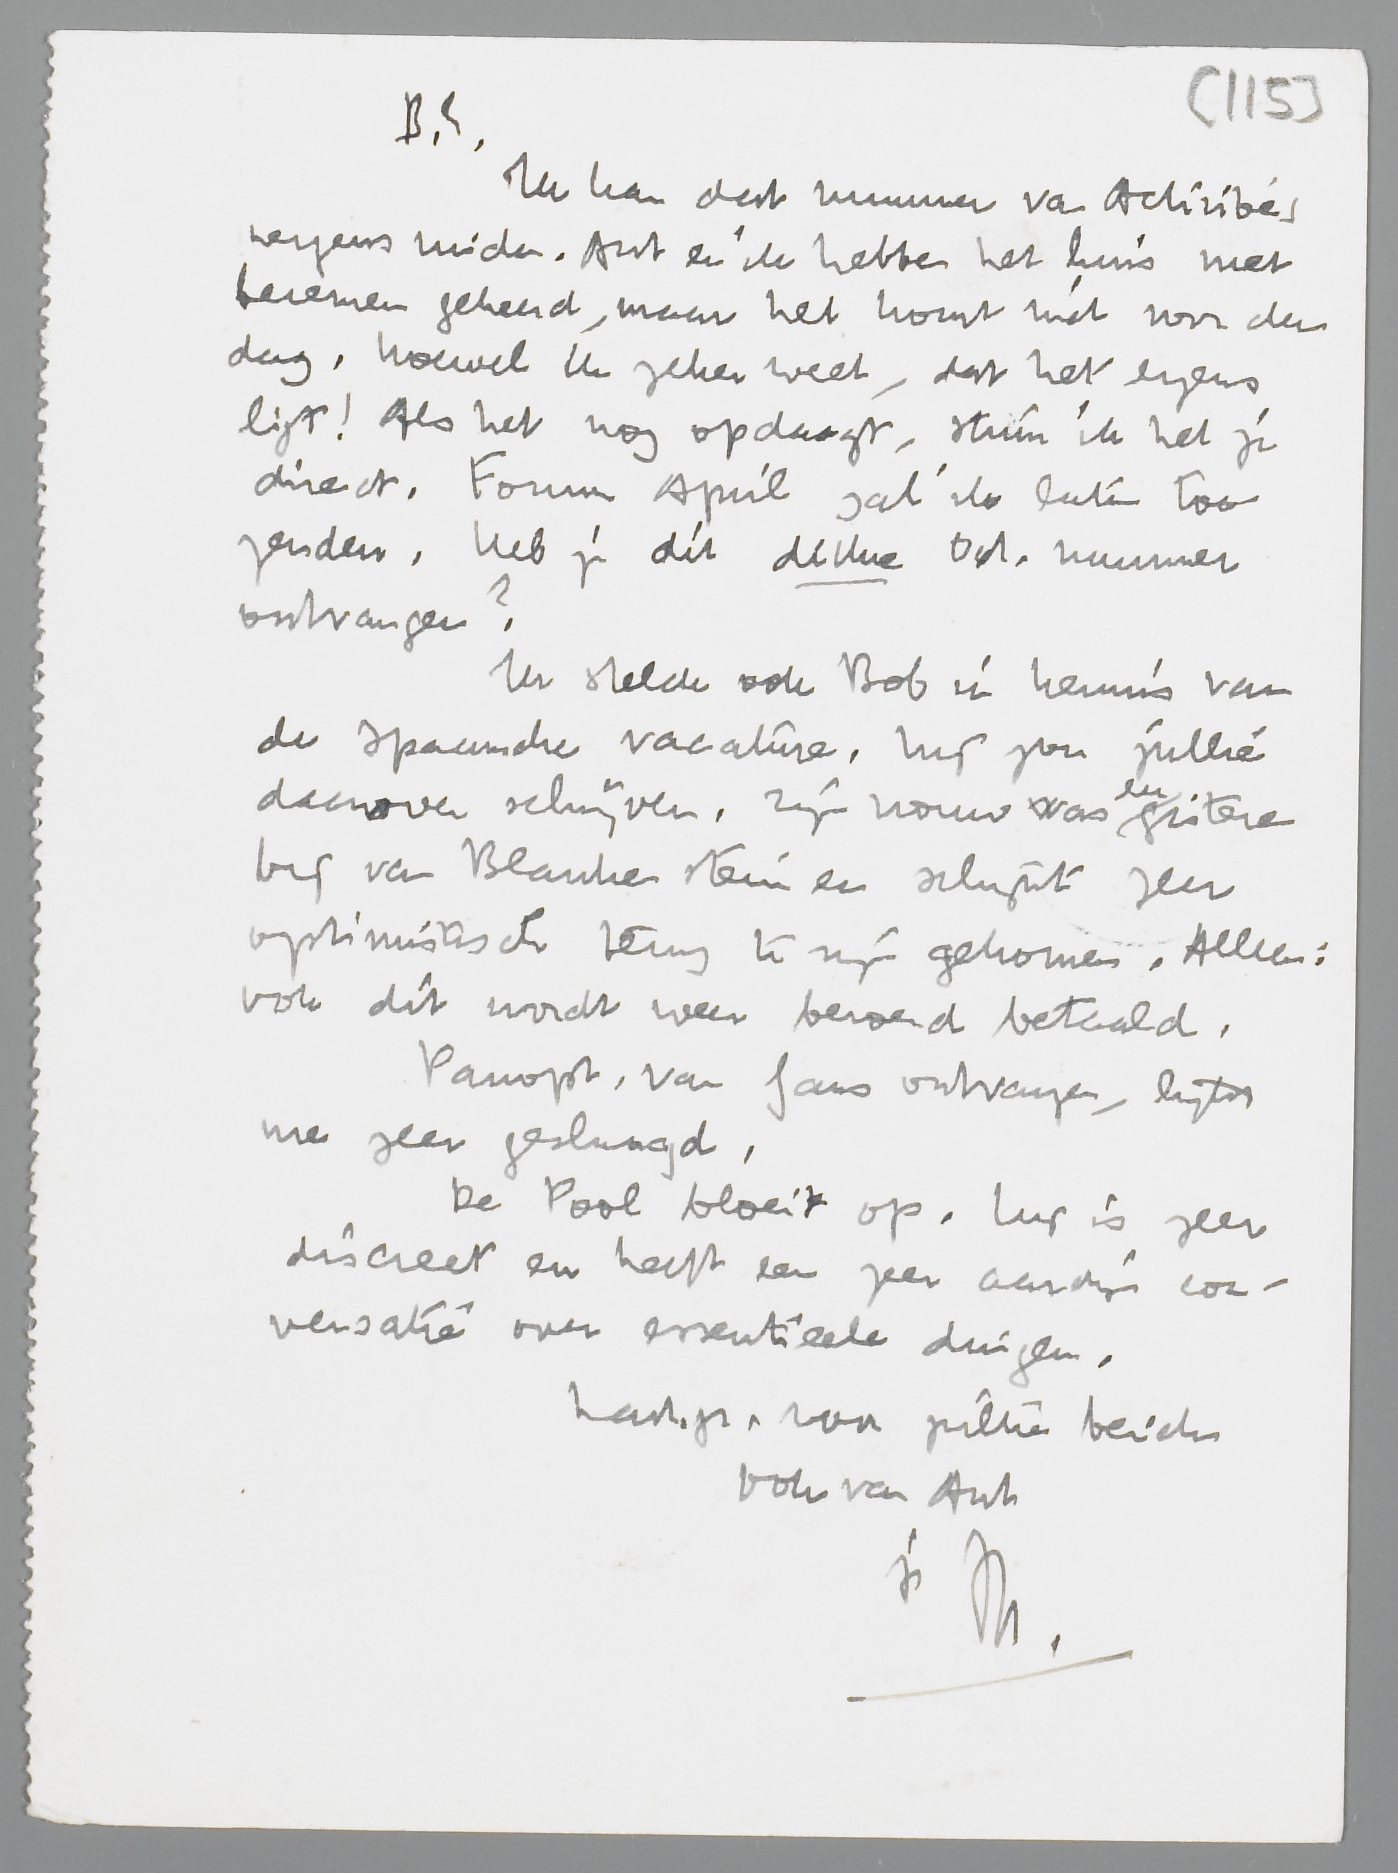 [115]
B.E.
Ik kan dat nummer van Activités
nergens vinden. Ant en ik hebben het huis met
bezemen gekeerd, maar het komt niet voor den
dag, hoewel ik zeker weet, dat het ergens
ligt! Als het nog opdaagt, stuur ik het je
direct. Forum April zal ik laten toe
zenden. Heb je dit dikke Oct. nummer
ontvangen?
Ik stelde ook Bob in kennis van
de Spaansche vacature. Hij zou jullie
daarover schrijven. Zijn vrouw was gisteren
bij van Blankenstein en schijnt zeer
optimistisch terug te zijn gekomen. Alleen:
ook dit wordt weer beroerd betaald.
Panopt. van Jans ontvangen, lijkt
me zeer geslaagd.
De Pool bloeit op. Hij is zeer
discreet en heeft een zeer aardige con-
versatie over essentieele dingen.
Hart. gr. voor jullie beiden
ook van Ant
je